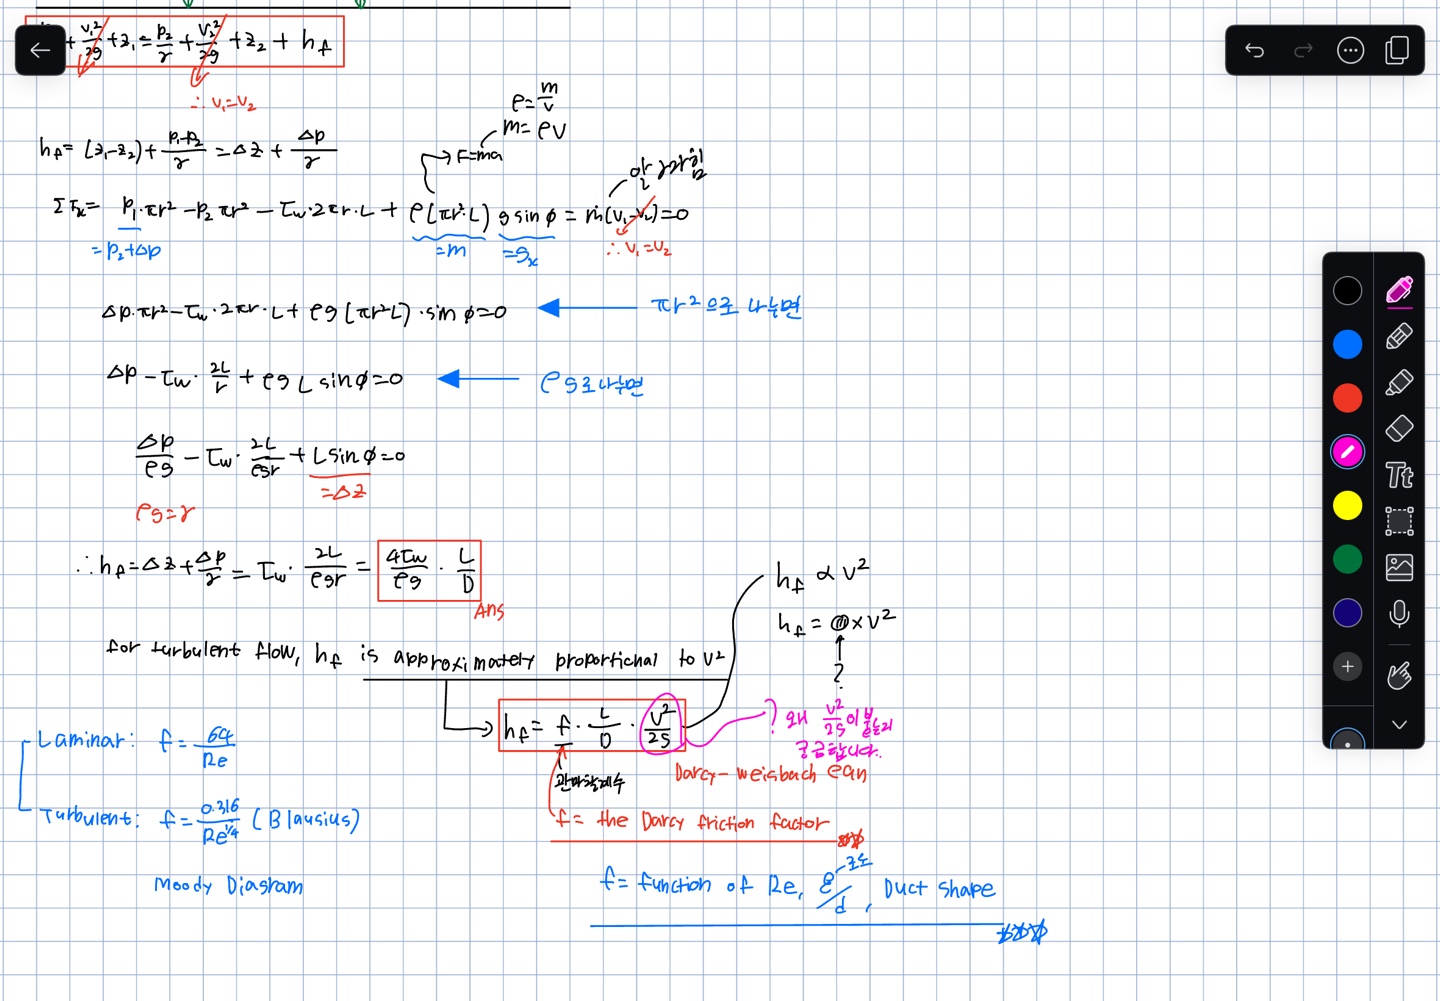 + v₁²/2g + z₁ = p₂/γ + v₂²/2g + z₂ + h_f
∴ v₁=v₂
ρ = m/v
m = ρv
F=ma
h_f = (z₁-z₂) + (p₁-p₂)/γ = Δz + Δp/γ
ΣF_x = p₁·πr² - p₂πr² - τ_w·2πr·L + ρ(πr²·L) g sin φ = ṁ(v₁-v₂) = 0
= p₂+Δp
= m
= g_x
∴ v₁=v₂
Δp·πr² - τ_w·2πr·L + ρg(πr²L)·sin φ = 0
πr²으로 나누면
Δp - τ_w·2L/r + ρg L sin φ = 0
ρg로 나누면
Δp/ρg - τ_w·2L/ρgr + L sin φ = 0
= Δz
ρg = γ
∴ h_f = Δz + Δp/γ = τ_w·2L/ρgr = 4τ_w/ρg · L/D
Ans
h_f ∝ v²
h_f = × v²
?
for turbulent flow, h_f is approximately proportional to v²
h_f = f · L/D · v²/2g
? 왜 v²/2g이 붙는지
궁금합니다.
관마찰계수
Darcy-weisbach eqn
f = the Darcy friction factor
f = function of Re, ε/d, Duct shape
조도
Laminar: f = 64/Re
Turbulent: f = 0.316/Re^1/4 (Blausius)
Moody Diagram
Tt